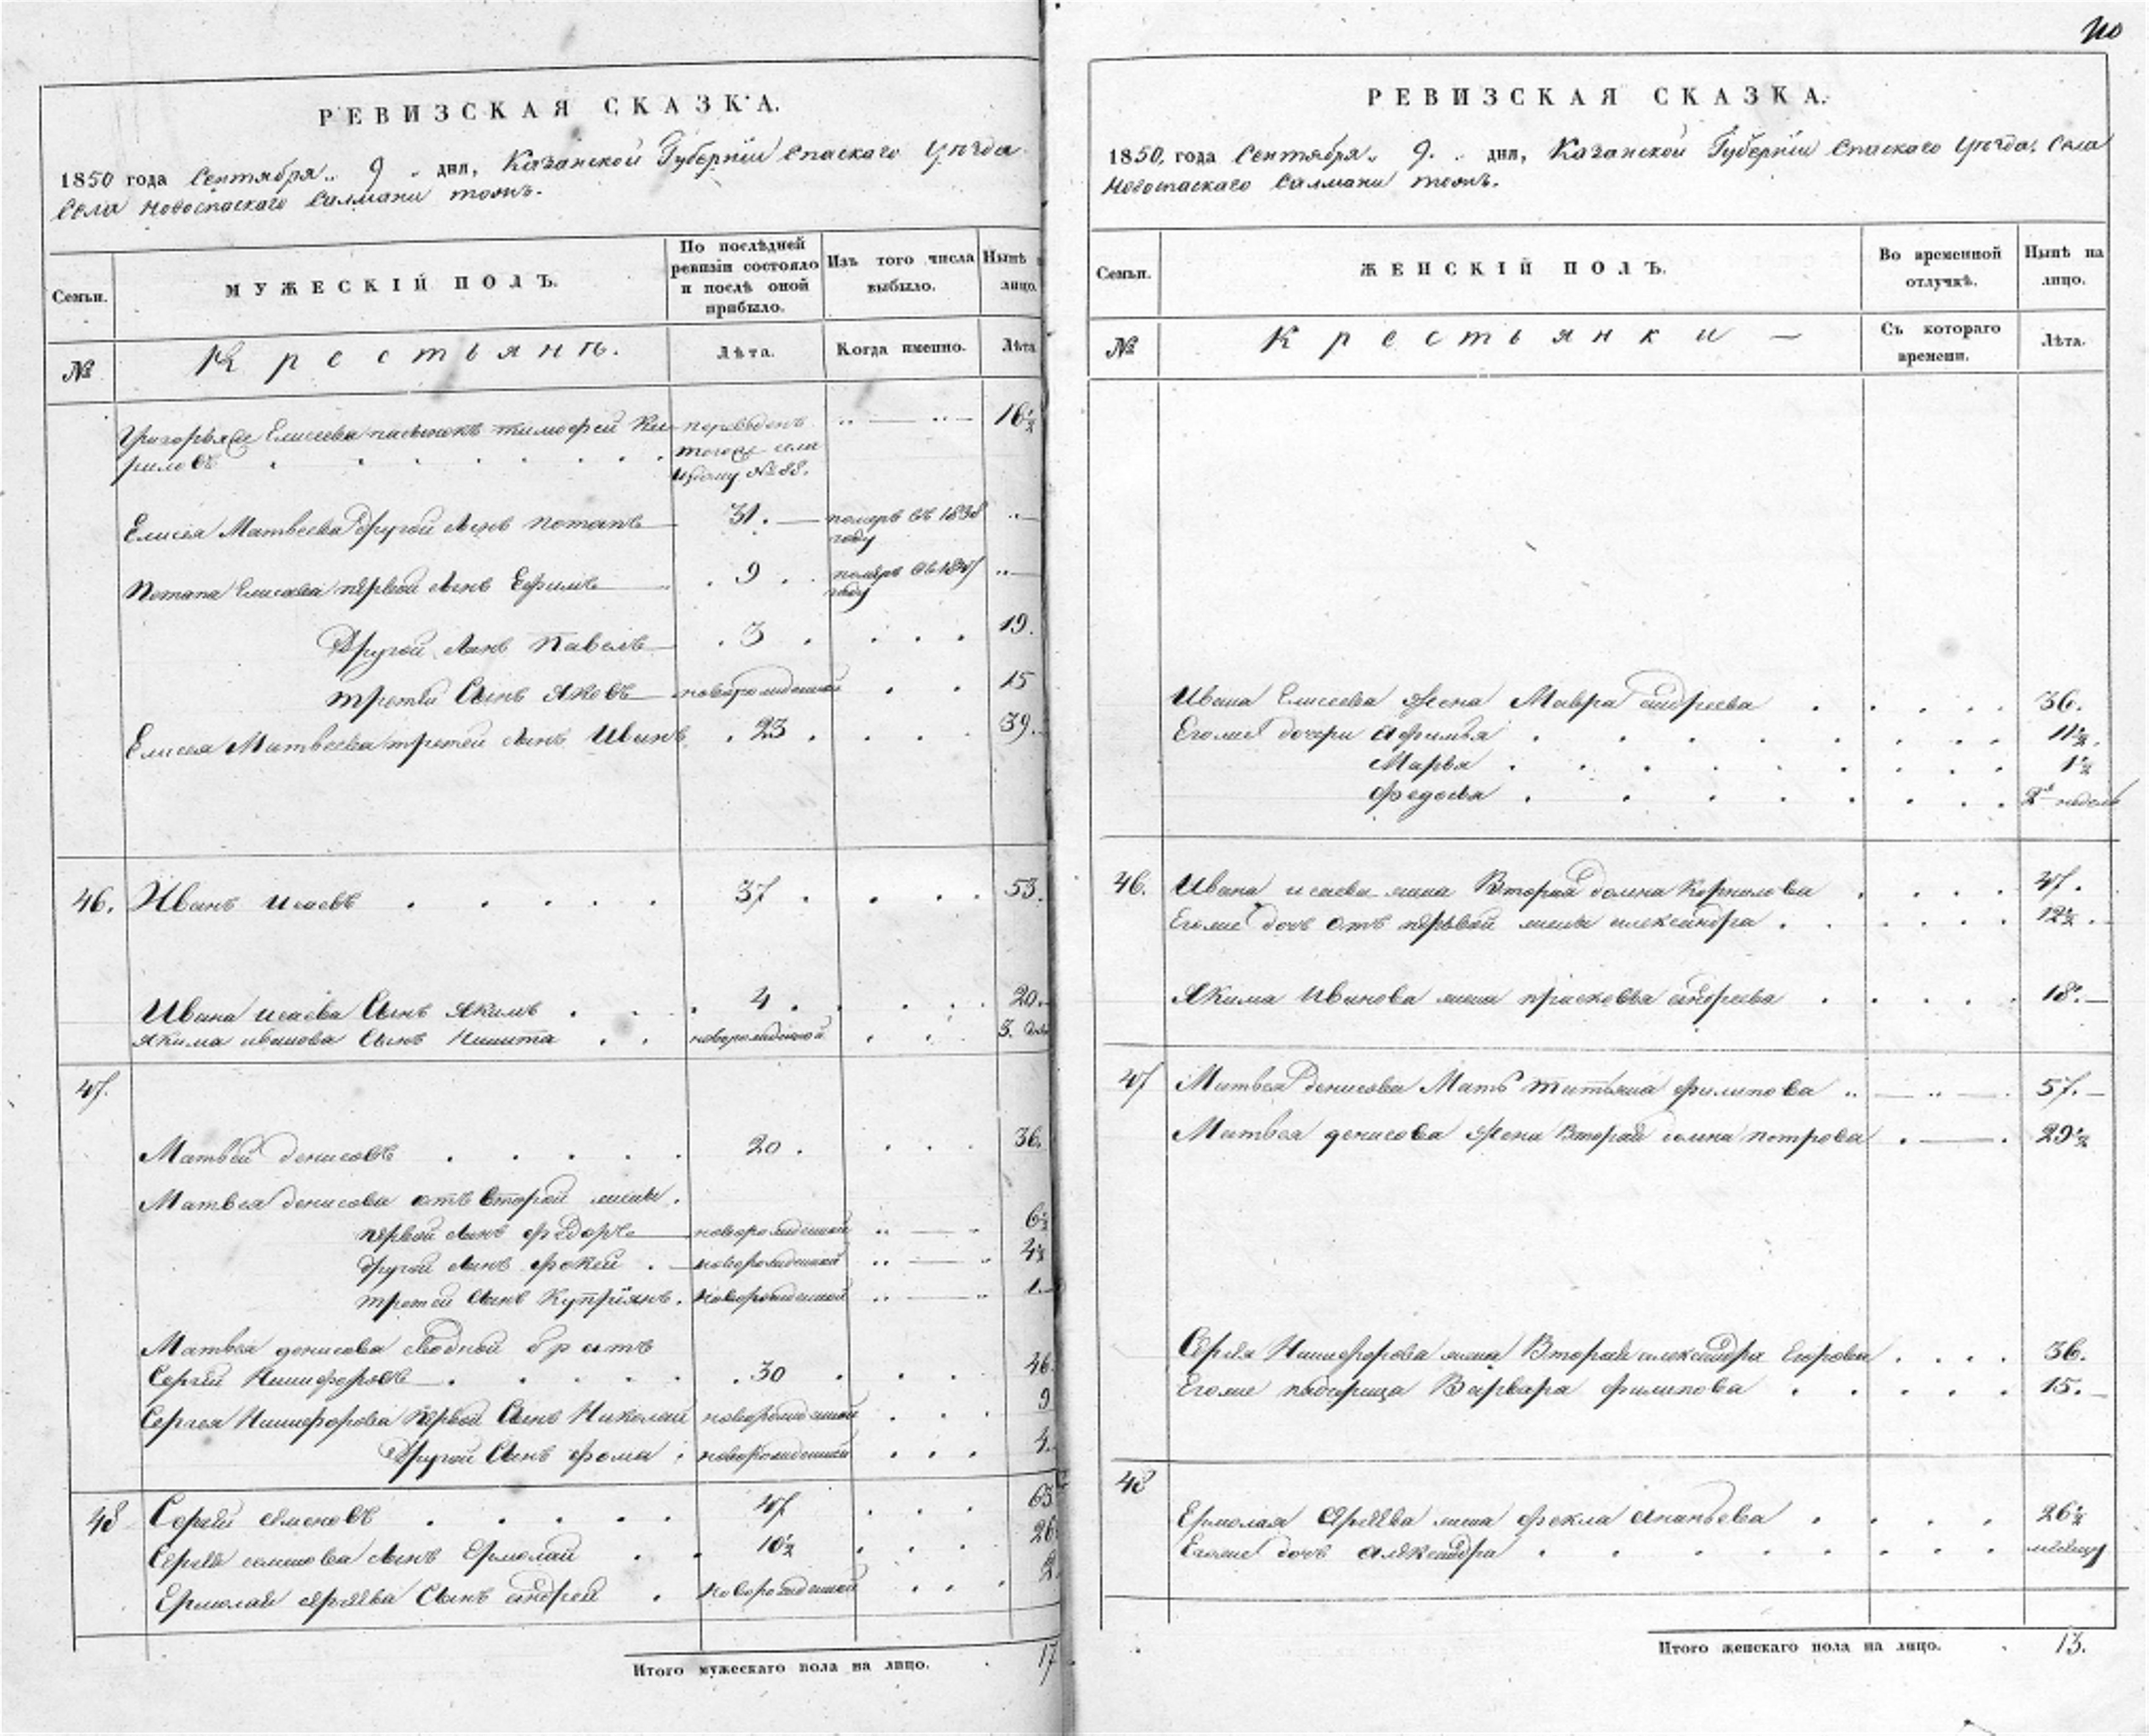 РЕВИЗСКАЯ СКАЗКА.
1850 года Сентября 9 дня, Казанской Губернiи Спаскаго Уѣзда
Села Новоспаскаго Салмани тожъ.
Семьи.
МУЖЕСКIЙ ПОЛЪ.
По послѣдней ревизiи состояло и послѣ оной прибыло.
Изъ того числа выбыло.
Нынѣ лицо.
№
Крестьянъ.
Лѣта.
Когда именно.
Лѣта
Григорья Елисеева пасынокъ тимофей Ки- переведенъ 16½
риловъ тогоже села
№ 88.
Елисея Матвеева другой сынъ потапъ 31. померъ въ 1838
году
Потапа Елисеева первой сынъ Ефимъ 9 померъ въ
году
Другой сынъ Павелъ 3 19.
третей Сынъ Яковъ новорожденной 15
Елисея Матвеева третей сынъ Иванъ 23 39.
46. Иванъ исаевъ 37 53.
Ивана исаева Сынъ якимъ 4 20.
якима иванова Сынъ Никита новорожденной 3.
47.
Матвей денисовъ 20 36.
Матвея денисова отъ второй жены
первой сынъ новорожденной 6½
другой сынъ фокей новорожденной 4½
третей сынъ Купрiянъ новорожденной 1
Матвея денисова сводной братъ
Сергей Никифоровъ 30 46.
Сергея Никифорова первой Сынъ Николай новорожденной 9
Другой Сынъ фома новорожденной 4.
48 Сергей семеновъ 47 63
Сергея семенова сынъ Ермолай 10½ 26
Ермолая сергеева Сынъ андрей новорожденной 2
Итого мужескаго пола на лицо. 17
РЕВИЗСКАЯ СКАЗКА.
1850, года Сентября 9. дня, Казанской Губернiи Спаскаго Уѣзда. Села
Новоспаскаго Салмани тожъ.
Семьи.
ЖЕНСКIЙ ПОЛЪ.
Во временной отлучкѣ.
Нынѣ на лицо.
№
Крестьянки
Съ котораго времени.
Лѣта.
Ивана Елисеева жена Мавра андреева 36.
Егоже дочери афимья 11½.
Марва 1½
Федосья 2 недель
46. Ивана исаева жена Вторая домна Корнилова 47.
Егоже дочь отъ первой жены александра 12½.
Якима Иванова жена прасковья андреева 18.
47 Матвея денисова Мать татьяна филипова 57.
Матвея денисова жена Вторая петрова 29½
Сергея Никифорова жена Вторая александра Егорова 36.
Егоже падчерица Варвара филипова 15.
48
Ермолая Сергеева жена фекла ананьева 26½
Егоже дочь александра
Итого женскаго пола на лицо. 13.